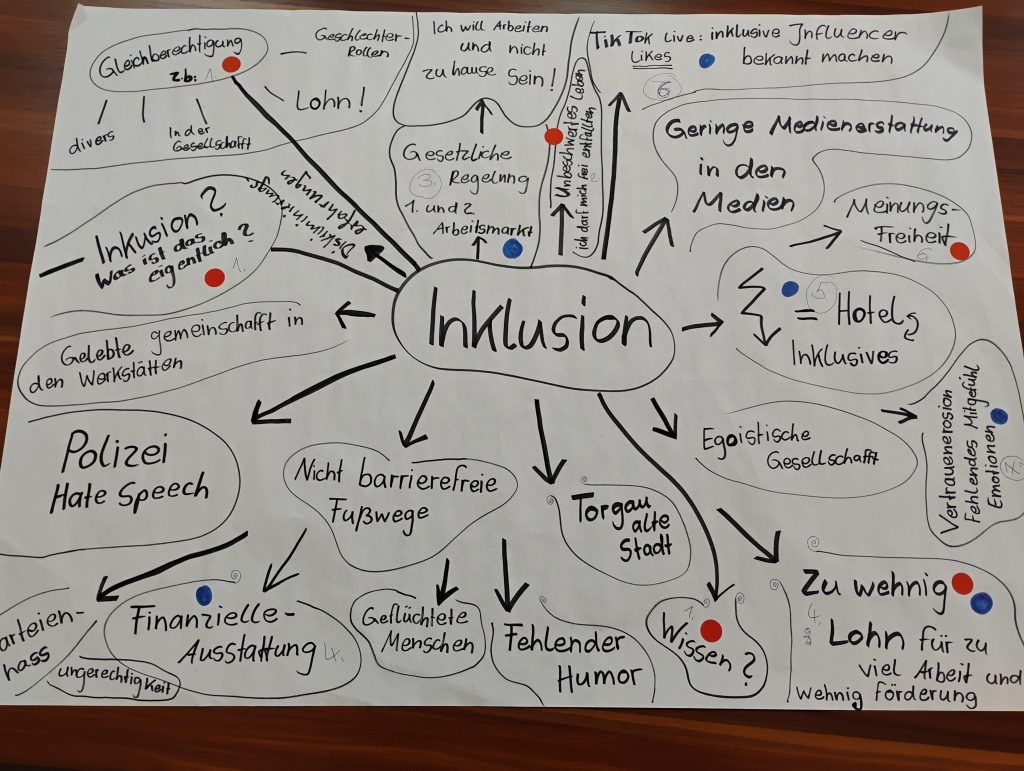 Gleichberechtigung
z.b: 1.
Geschlechter-
Rollen
Lohn!
divers
In der
Gesellschafft
Ich will Arbeiten
und nicht
zuhause Sein!
Gesetzliche
3. Regelnng
1. und 2
Arbeitsmarkt
Unbeschwertes Leben
(ich darf mich frei entfallten
TikTok Live: inklusive Influencer
Likes bekannt machen
6
Geringe Medienerstattung
in den
Medien
Meinungs-
Freiheit
6.
Diskriminierungs
erfahrungen
Inkusion?
Was ist das
eigentlich?
1.
Gelebte gemeinschafft in
den Werkstätten
Inklusion
5
= Hotel
Inklusives
Egoistische
Gesellschafft
Vertrauenerosion
Fehlendes Mitgefühl
Emotionen
Polizei
Hate Speech
Nicht barrierefreie
Fußwege
Torgau
alte
Stadt
arteien-
hass
ungerechtigkeit
Finanzielle-
Ausstattung
Geflüchtete
Menschen
Fehlender
Humor
1.
Wissen?
Zu wehnig
4.
Lohn für zu
viel Arbeit und
wehnig förderung